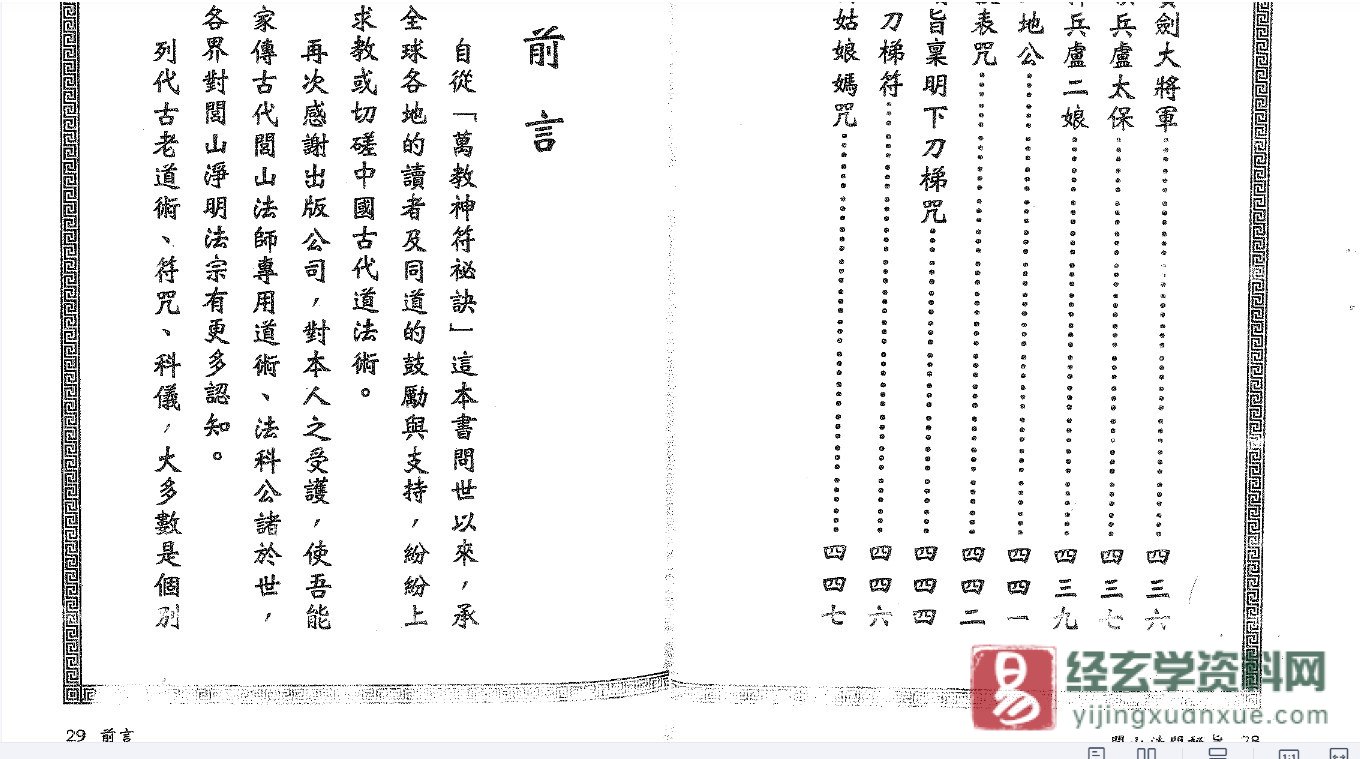 劍大將軍……四三六
兵盧太保……四三七
兵盧二娘……四三九
地公……四四一
表咒……四四二
旨稟明下刀梯咒……四四四
刀梯符……四四六
姑娘媽咒……四四七
前言
自從「萬教神符祕訣」這本書問世以來，承
全球各地的讀者及同道的鼓勵與支持，紛紛上
求教或切磋中國古代道法術。
再次感謝出版公司，對本人之受護，使吾能
家傳古代閭山法師專用道術、法科公諸於世，
各界對閭山淨明法宗有更多認知。
列代古老道術、符咒、科儀，大多數是個別
29 前言
28
易
经玄学资料网
yijingxuanxue.com
1:1